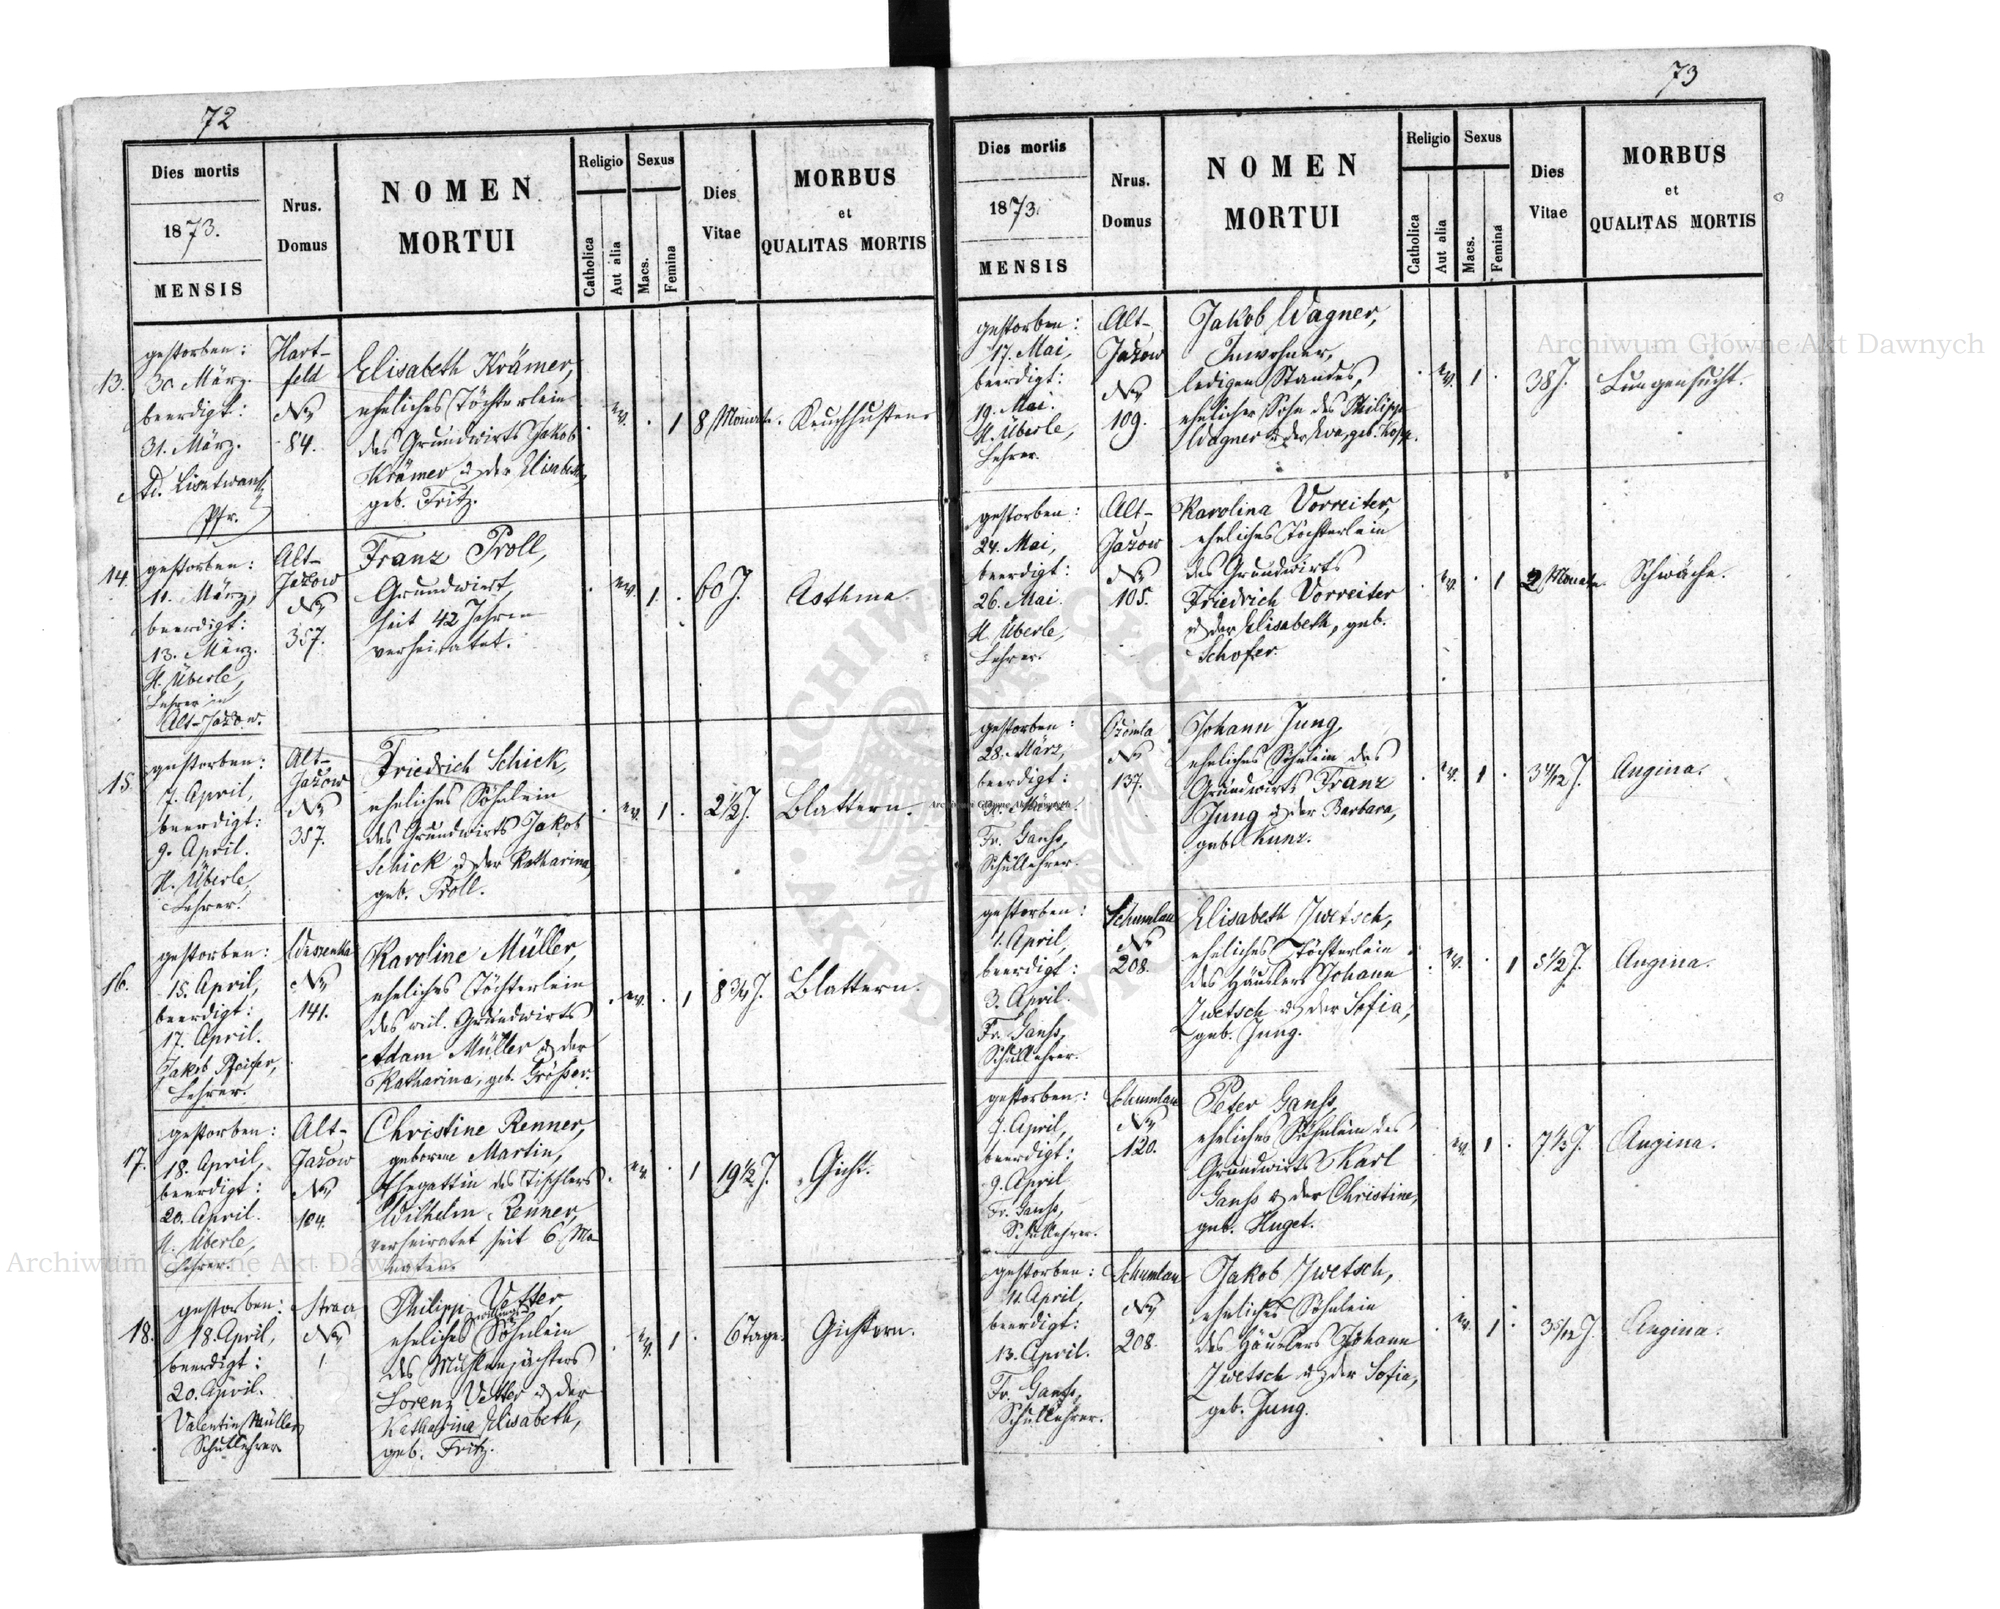 72
Dies mortis
1873.
MENSIS
Nrus.
Domus
NOMEN
MORTUI
Religio
Catholica
Aut alia
Sexus
Macs.
Femina
Dies
Vitae
MORBUS
et
QUALITAS MORTIS
13.
gestorben:
30. März.
beerdigt:
31. März.
Pfr.
Hart-
feld
No
84.
Elisabeth Krämer,
eheliches Töchterlein
des Grundwirts Jakob
Krämer u. der Elisabeth,
geb. Fritz.
ev.
1
8 Monate.
Keuchhusten.
14.
gestorben:
11. März,
beerdigt:
13. März.
H. Überle,
Lehrer in
Alt-Jazow.
Alt-
Jazow
No
357.
Franz Proll,
Grundwirt,
seit 42 Jahren
verheiratet.
ev.
1
60 J.
Asthma.
15.
gestorben:
7. April,
beerdigt:
9. April.
H. Überle,
Lehrer.
Alt-
Jazow
No
357.
Friedrich Schick,
eheliches Söhnlein
des Grundwirts Jakob
Schick u. der Katharina,
geb. Proll.
ev.
1
2 1/2 J.
Blattern.
16.
gestorben:
15. April,
beerdigt:
17. April.
Jakob Pfeifer,
Lehrer.
No
141.
Karoline Müller,
eheliches Töchterlein
des weil. Grundwirts
Adam Müller u. der
Katharina, geb. Größer.
ev.
1
8 3/4 J.
Blattern.
17.
gestorben:
18. April,
beerdigt:
20. April.
H. Überle,
Lehrer.
Alt-
Jazow
No
104.
Christine Renner,
geborene Martin,
Ehegattin des Tischlers
Wilhelm Renner,
verheiratet seit 6 Mo-
naten.
ev.
1
19 1/2 J.
Gicht.
18.
gestorben:
18. April,
beerdigt:
20. April.
Valentin Müller
Schullehrer
No
1
Philipp Vetter,
eheliches Söhnlein
des
Lorenz Vetter u. der
Katharina Elisabeth,
geb. Fritz.
ev.
1
6 Tage.
Gichtern.
73
Dies mortis
1873.
MENSIS
Nrus.
Domus
NOMEN
MORTUI
Religio
Catholica
Aut alia
Sexus
Macs.
Femina
Dies
Vitae
MORBUS
et
QUALITAS MORTIS
gestorben:
17. Mai,
beerdigt:
19. Mai.
H. Überle,
Lehrer.
Alt-
Jazow
No
109.
Jakob Wagner,
Inwohner,
ledigen Standes,
ehelicher Sohn des Philipp
Wagner u. der Eva, geb. Kopp.
ev.
1
38 J.
Lungensucht.
gestorben:
24. Mai,
beerdigt:
26. Mai.
H. Überle,
Lehrer.
Alt-
Jazow
No
105.
Karolina Vorreiter,
eheliches Töchterlein
des Grundwirts
Friedrich Vorreiter
u. der Elisabeth, geb.
Schofer.
ev.
1
2 Monate.
Schwäche.
gestorben:
28. März,
beerdigt:
Fr. Ganß,
Schullehrer.
No
137.
Johann Jung,
eheliches Söhnlein des
Grundwirts Franz
Jung u. der Barbara,
geb. Kunz.
ev.
1
Angina.
gestorben:
1. April,
beerdigt:
3. April.
Fr. Ganß,
Schullehrer.
Schumlau
No
208.
Elisabeth Zwetsch,
eheliches Töchterlein
des Häuslers Johann
Zwetsch u. der Sofia,
geb. Jung.
ev.
1
5 1/2 J.
Angina.
gestorben:
7. April,
beerdigt:
9. April
Fr. Ganß,
Schullehrer.
Schumlau
No
120.
Peter Ganß,
eheliches Söhnlein des
Grundwirts Karl
Ganß u. der Christine,
geb. Huget.
ev.
1
Angina.
gestorben:
11. April,
beerdigt:
13. April.
Fr. Ganß,
Schullehrer.
Schumlau
No
208.
Jakob Zwetsch,
eheliches Söhnlein
des Häuslers Johann
Zwetsch u. der Sofia,
geb. Jung.
ev.
1
3 5/12 J.
Angina.
Archiwum Główne Akt Dawnych
Archiwum Główne Akt Dawnych
Archiwum Główne Akt Dawnych